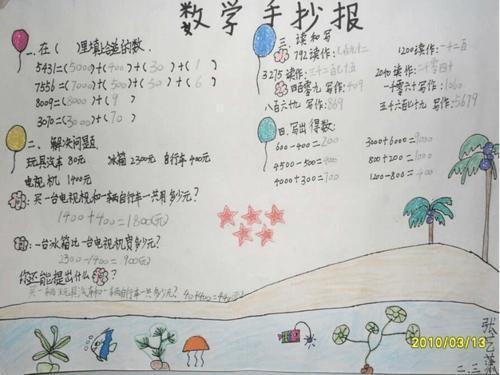 数学手抄报
一.在( )里填上合适的数.
5431=(5000)+(400)+(30)+(1)
7556=(7000)+(500)+(50)+(6)
8009=(8000)+(9)
3070=(3000)+(70)
二.解决问题
玩具汽车 80元 冰箱 2300元 自行车 400元
电视机 1400元
买一台电视机和一辆自行车一共用多少元?
1400+400=1800(元)
一台冰箱比一台电视机贵多少元?
2300-1400=900(元)
你还能提出什么?
三.读和写
792读作:七百九十二 1200读作:一千二百
3275读作:三千二百七十五 2040读作:二千零四十
四百零九 写作:409 一千零六十 写作:1060
八百六十九 写作:869
四.写出得数:
600-400=200 3000+6000=9000
4500-500=4000 800+200=1000
4000+300= 1200-800=400
2010/03/13
二.三